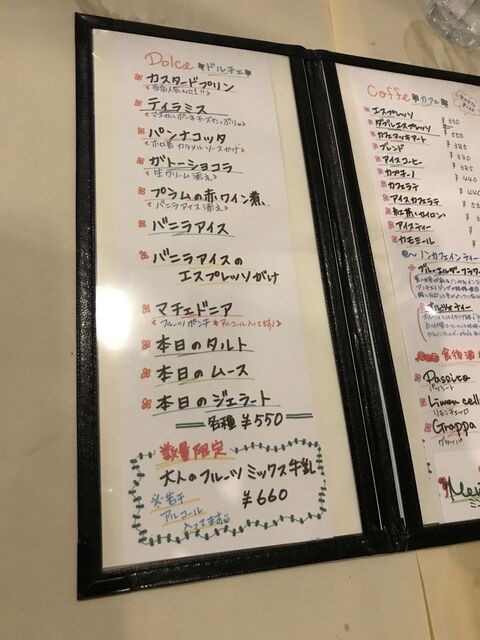 Dolce ドルチェ
カスタードプリン
ティラミス
パンナコッタ
ホロ苦 カラメルソースがけ
ガトーショコラ
生クリーム添え
プラムの赤ワイン煮
バニラアイス添え
バニラアイス
バニラアイスの
エスプレッソがけ
マチェドニア
フルーツポンチ ※アルコール入ってます!
本日のタルト
本日のムース
本日のジェラート
各種 ¥550
数量限定
大人のフルーツミックス牛乳
¥660
※若干
アルコール
入ってます
Coffe カフェ
エスプレッソ
ダブルエスプレッソ
カフェマッキアート
ブレンド
アイスコーヒー
カプチーノ ¥440
カフェラテ
アイスカフェラテ
紅茶(セイロン)
アイスティー
カモミール
ノンカフェインティー
ブルーエルダーフラワー
食後酒
Passito
パッシート
Limon cell
リモンチェッロ
Grappa
グラッパ